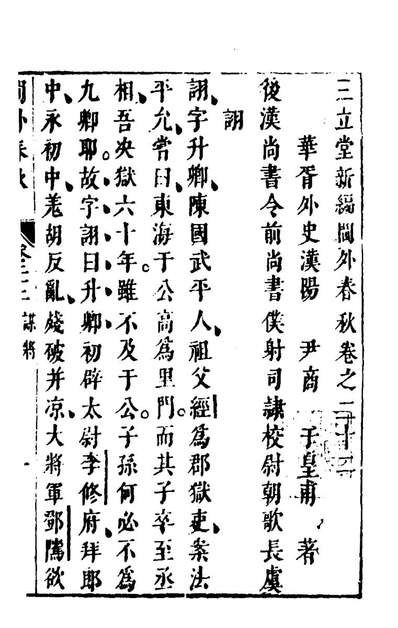 三立堂新編閫外春秋卷之二十三
華胥外史漢陽 尹商 于皇甫 著
後漢尚書令前尚書僕射司隷校尉朝歌長虞
詡
詡字升卿陳國武平人祖父經爲郡獄吏案法
平允嘗曰東海于公高爲里門而其子卒至丞
相吾决獄六十年雖不及于公子孫何必不爲
九卿耶故字詡曰升卿初辟太尉李修府拜郎
中永初中羗胡反亂殘破并凉大將軍鄧隲欲
閫外春秋 謀將